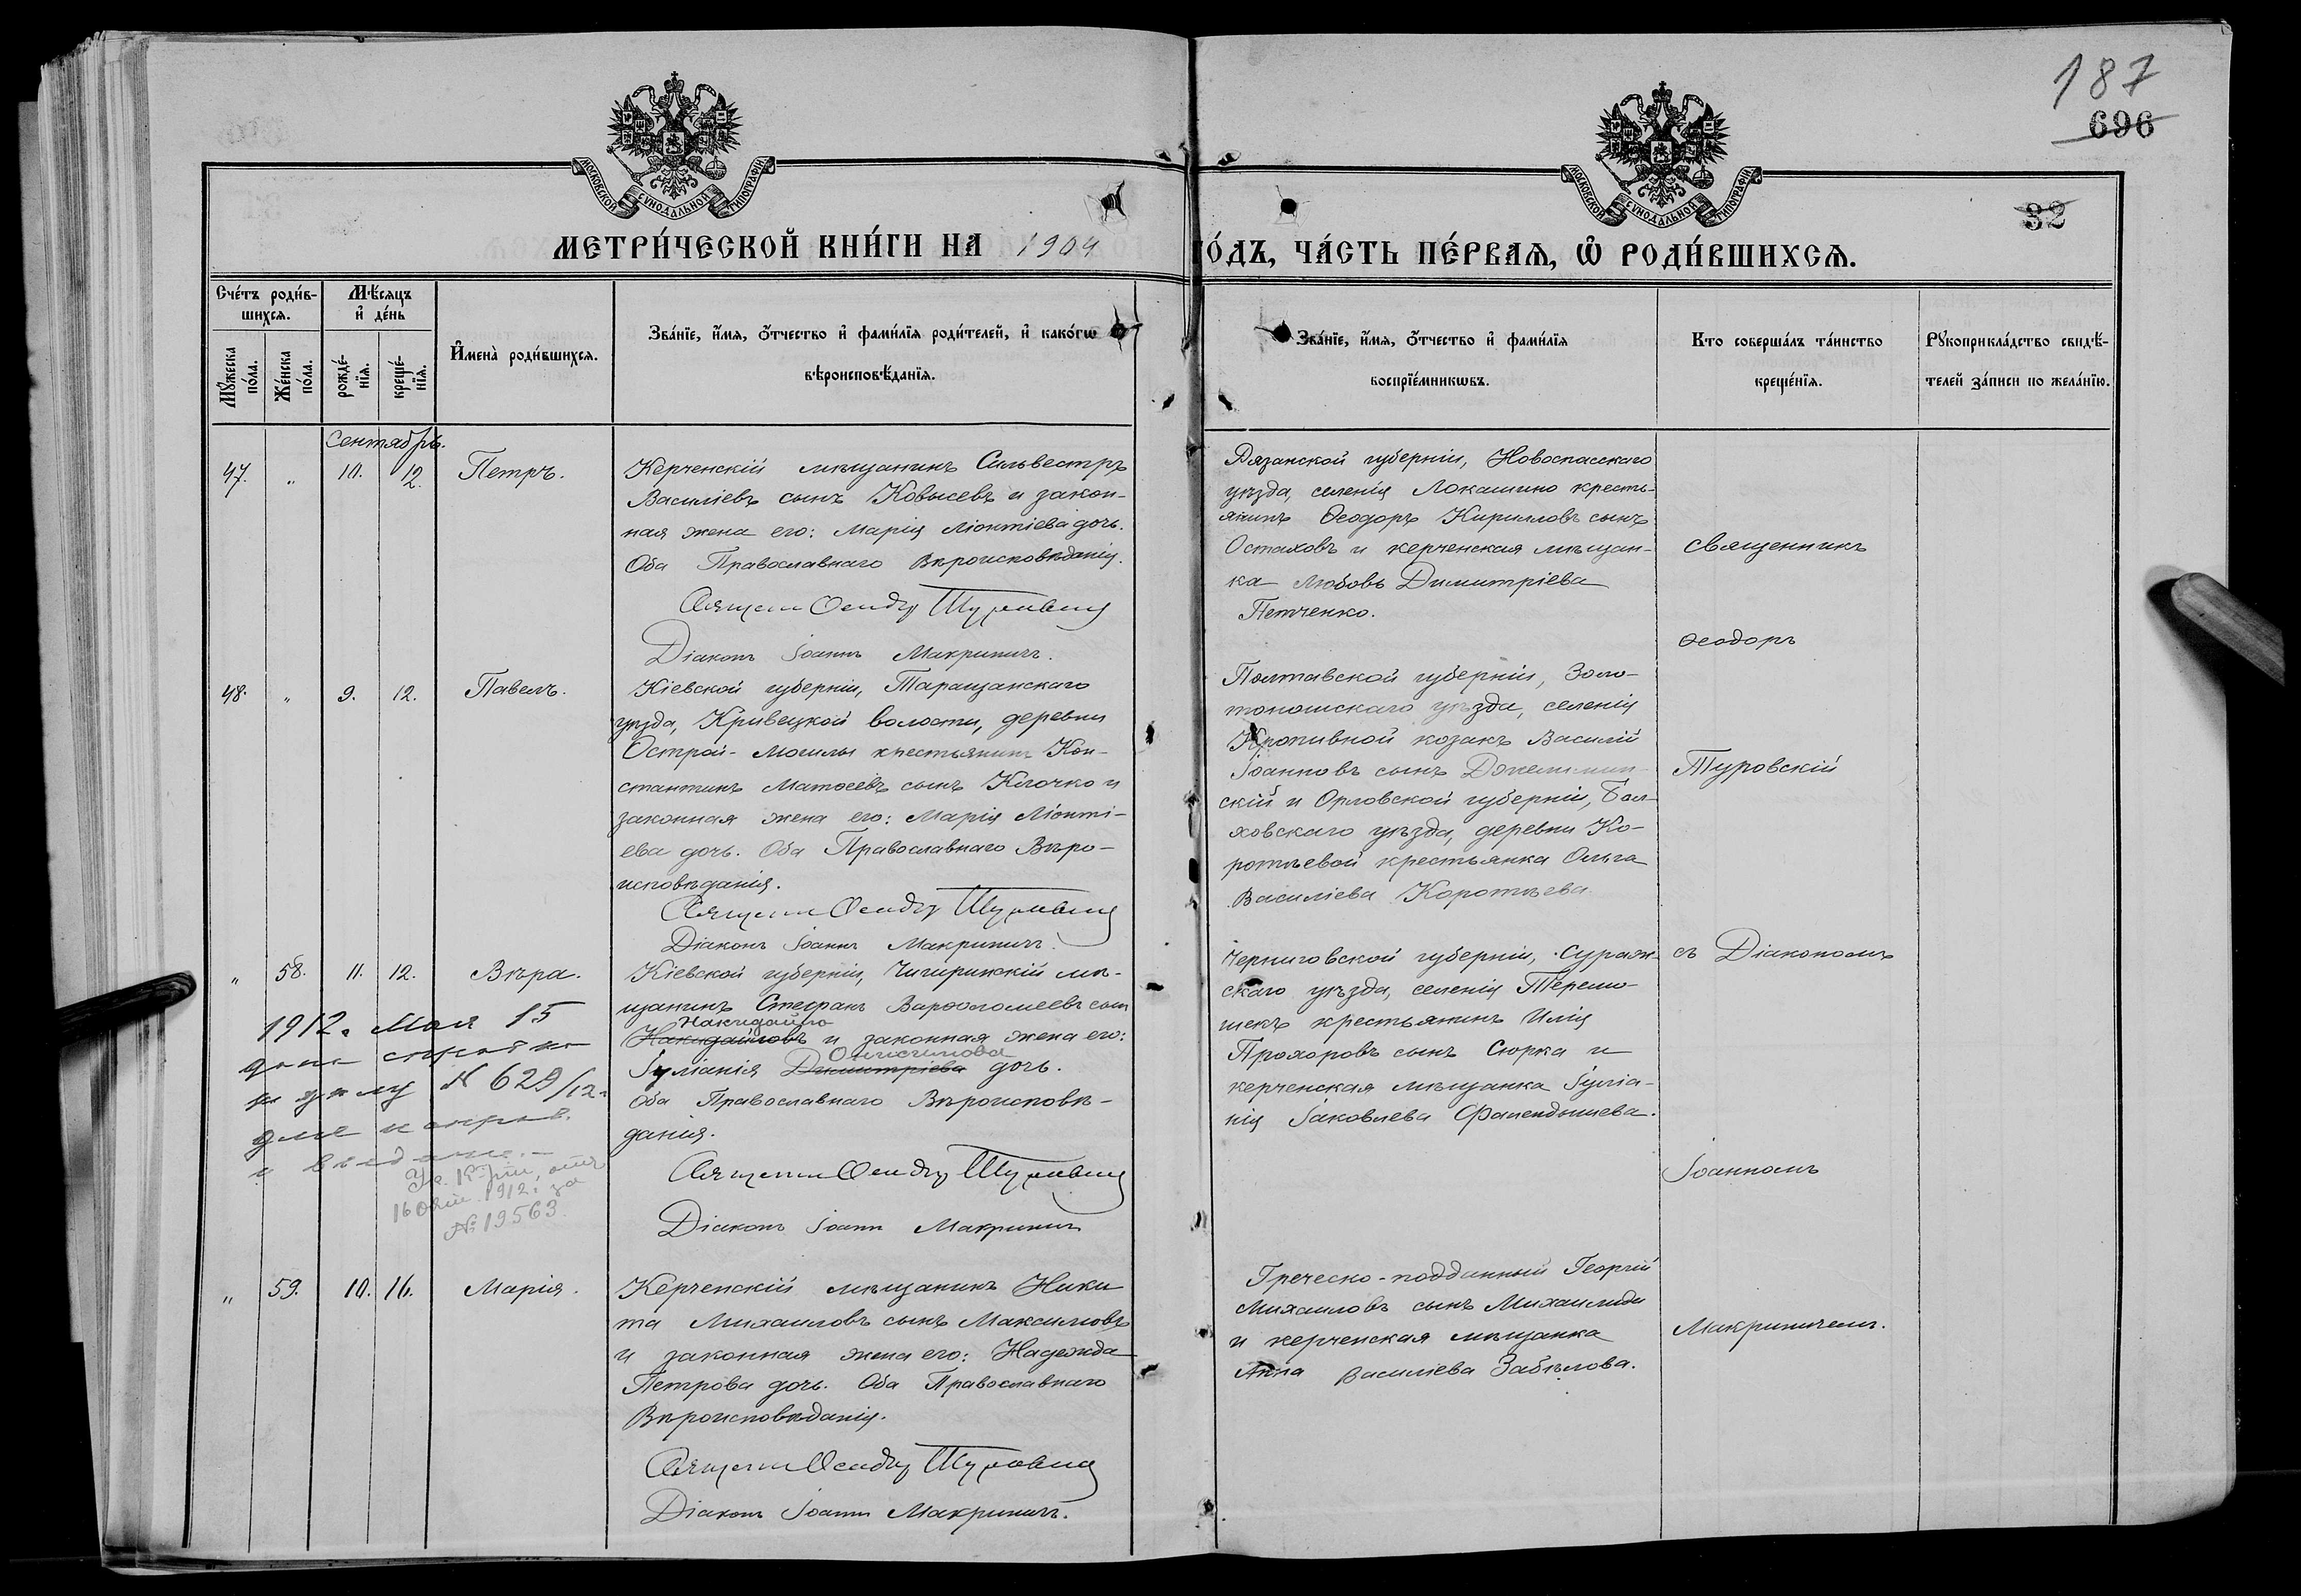 187
696
32
МОСКОВСКОЙ СѴНОДАЛЬНОЙ ТИПОГРАФІИ
МОСКОВСКОЙ СѴНОДАЛЬНОЙ ТИПОГРАФІИ
МЕТРИ́ЧЕСКОЙ КНИ́ГИ НА 1904
ГО́ДЪ, ЧА́СТЬ ПЕ́РВАЯ, Ѿ РОДИ́ВШИХСЯ.
Сче́тъ роди́в-
шихся.
Мѣ́сяцъ
и҆ де́нь
Мꙋ́жеска
по́ла.
Же́нска
по́ла.
рожде́-
нїя.
креще́-
нїя.
И҆мена̀ роди́вшихся.
Зва́нїе, и҆́мя, о҆́тчество и҆ фами́лїя роди́телей, и҆ како́гѡ
вѣроисповѣ́данїя.
Зва́нїе, и҆́мя, о҆́тчество и҆ фами́лїя
воспрїе́мникѡвъ.
Кто соверша́лъ та́инство
креще́нїя.
Рꙋкоприкла́дство свидѣ́-
телей за́писи по жела́нїю.
Сентябрь.
47. " 10. 12. Петръ.
Керченскій мѣщанинъ Сильвестръ
Василіевъ сынъ Ковысевъ и закон-
ная жена его: Марія Ліонтіева дочь.
Оба Православнаго Вѣроисповѣданія.
Діаконъ Іоаннъ Макринич.
Рязанской губерніи, Новоспасскаго
уѣзда, селенія Локашино кресть-
янинъ Ѳеодоръ Кирилловъ сынъ
Остаховъ и керченская мѣщан-
ка Любовь Димитріева
Петченко.
Священникъ
Ѳеодоръ
48. " 9. 12. Павелъ.
Кіевской губерніи, Таращанскаго
уѣзда, Кривецкой волости, деревни
Острой-Могилы крестьянинъ Кон-
стантинъ Матѳеевъ сынъ Клочко и
законная жена его: Марія Ліонті-
ева дочь. Оба Православнаго Вѣро-
исповѣданія.
Діаконъ Іоаннъ Макринич.
Полтавской губерніи, Золо-
тоношскаго уѣзда, селенія
Кропивной козакъ Василій
Іоанновъ сынъ
скій и Орловской губерніи, Бол-
ховскаго уѣзда, деревни Ко-
ротѣевой крестьянка Ольга
Василіева Коротѣева
Туровскій
" 58. 11. 12. Вѣра.
Кіевской губерніи, Чигиринскій мѣ-
щанинъ Стефанъ Варѳоломеевъ сынъ
Накидайло
Накидайловъ и законная жена его:
Онисимова
Іуліанія Димитріева дочь.
Оба Православнаго Вѣроисповѣ-
данія.
Діаконъ Іоаннъ Макринич
1912 г. Мая 15
дѣлу № 629/12
16 1912 г. за
№ 19563
Черниговской губерніи, Сураж-
скаго уѣзда, селенія Теремо-
шекъ крестьянинъ Илія
Прохоровъ сынъ Сюрка и
керченская мѣщанка Іуліа-
нія Іаковлева Фанендышева.
съ Діакономъ
Іоанномъ
" 59. 10. 16. Марія.
Керченскій мѣщанинъ Ники
та Михаиловъ сынъ Максимовъ
и законная жена его: Надежда
Петрова дочь. Оба Православнаго
Вѣроисповѣданія.
Діаконъ Іоаннъ Макринич.
Греческо-подданный Георгій
Михаиловъ сынъ Михаилиди
и керченская мѣщанка
Анна Василіева Забѣлова.
Макриничемъ.